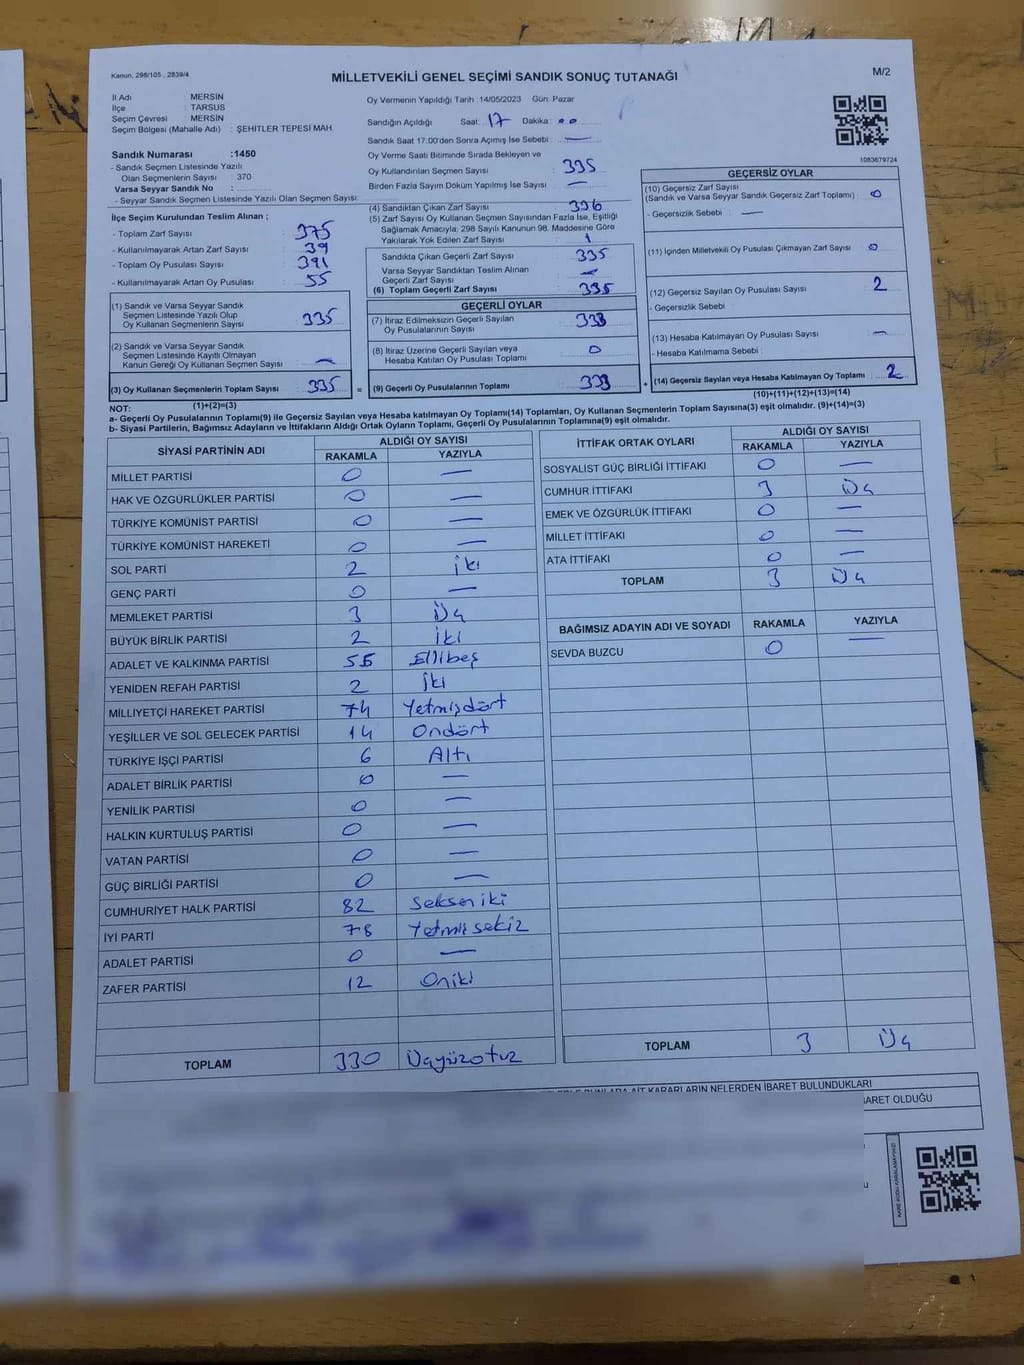 Kanun, 298/105 , 2839/4
MİLLETVEKİLİ GENEL SEÇİMİ SANDIK SONUÇ TUTANAĞI
M/2
İl Adı : MERSİN
İlçe : TARSUS
Seçim Çevresi : MERSİN
Seçim Bölgesi (Mahalle Adı) : ŞEHİTLER TEPESİ MAH.
Sandık Numarası :1450
- Sandık Seçmen Listesinde Yazılı
Olan Seçmenlerin Sayısı : 370
Varsa Seyyar Sandık No :
- Seyyar Sandık Seçmen Listesinde Yazılı Olan Seçmen Sayısı:
İlçe Seçim Kurulundan Teslim Alınan ;
- Toplam Zarf Sayısı : 375
- Kullanılmayarak Artan Zarf Sayısı : 39
- Toplam Oy Pusulası Sayısı : 391
- Kullanılmayarak Artan Oy Pusulası : 55
(1) Sandık ve Varsa Seyyar Sandık
Seçmen Listesinde Yazılı Olup
Oy Kullanan Seçmenlerin Sayısı : 335
(2) Sandık ve Varsa Seyyar Sandık
Seçmen Listesinde Kayıtlı Olmayan
Kanun Gereği Oy Kullanan Seçmen Sayısı : —
(3) Oy Kullanan Seçmenlerin Toplam Sayısı : 335
(1)+(2)=(3)
Oy Vermenin Yapıldığı Tarih :14/05/2023 Gün: Pazar
Sandığın Açıldığı Saat: 17 Dakika :
Sandık Saat 17:00'den Sonra Açımış İse Sebebi : —
Oy Verme Saati Bitiminde Sırada Bekleyen ve
Oy Kullandırılan Seçmen Sayısı : 335
Birden Fazla Sayım Döküm Yapılmış İse Sayısı : —
(4) Sandıktan Çıkan Zarf Sayısı : 336
(5) Zarf Sayısı Oy Kullanan Seçmen Sayısından Fazla İse, Eşitliği
Sağlamak Amacıyla; 298 Sayılı Kanunun 98. Maddesine Göre
Yakılarak Yok Edilen Zarf Sayısı : 1
Sandıkta Çıkan Geçerli Zarf Sayısı : 335
Varsa Seyyar Sandıktan Teslim Alınan
Geçerli Zarf Sayısı : —
(6) Toplam Geçerli Zarf Sayısı : 335
GEÇERLİ OYLAR
(7) İtiraz Edilmeksizin Geçerli Sayılan
Oy Pusulalarının Sayısı : 333
(8) İtiraz Üzerine Geçerli Sayılan veya
Hesaba Katılan Oy Pusulası Toplamı : 0
= (9) Geçerli Oy Pusulalarının Toplamı : 333
1083679724
GEÇERSİZ OYLAR
(10) Geçersiz Zarf Sayısı
(Sandık ve Varsa Seyyar Sandık Geçersiz Zarf Toplamı) : 0
- Geçersizlik Sebebi : —
(11) İçinden Milletvekili Oy Pusulası Çıkmayan Zarf Sayısı : 0
(12) Geçersiz Sayılan Oy Pusulası Sayısı : 2
- Geçersizlik Sebebi :
(13) Hesaba Katılmayan Oy Pusulası Sayısı : —
- Hesaba Katılmama Sebebi :
+ (14) Geçersiz Sayılan veya Hesaba Katılmayan Oy Toplamı : 2
(10)+(11)+(12)+(13)=(14)
NOT:
a- Geçerli Oy Pusulalarının Toplamı(9) ile Geçersiz Sayılan veya Hesaba katılmayan Oy Toplamı(14) Toplamları, Oy Kullanan Seçmenlerin Toplam Sayısına(3) eşit olmalıdır. (9)+(14)=(3)
b- Siyasi Partilerin, Bağımsız Adayların ve İttifakların Aldığı Ortak Oyların Toplamı, Geçerli Oy Pusulalarının Toplamına(9) eşit olmalıdır.
SİYASİ PARTİNİN ADI ALDIĞI OY SAYISI
RAKAMLA YAZIYLA
MİLLET PARTİSİ 0 —
HAK VE ÖZGÜRLÜKLER PARTİSİ 0 —
TÜRKİYE KOMÜNİST PARTİSİ 0 —
TÜRKİYE KOMÜNİST HAREKETİ 0 —
SOL PARTİ 2 İki
GENÇ PARTİ 0 —
MEMLEKET PARTİSİ 3 Üç
BÜYÜK BİRLİK PARTİSİ 2 İki
ADALET VE KALKINMA PARTİSİ 55 Ellibeş
YENİDEN REFAH PARTİSİ 2 İki
MİLLİYETÇİ HAREKET PARTİSİ 74 Yetmişdört
YEŞİLLER VE SOL GELECEK PARTİSİ 14 Ondört
TÜRKİYE İŞÇİ PARTİSİ 6 Altı
ADALET BİRLİK PARTİSİ 0 —
YENİLİK PARTİSİ 0 —
HALKIN KURTULUŞ PARTİSİ 0 —
VATAN PARTİSİ 0 —
GÜÇ BİRLİĞİ PARTİSİ 0 —
CUMHURİYET HALK PARTİSİ 82 Seksen iki
İYİ PARTİ 78 Yetmiş sekiz
ADALET PARTİSİ 0 —
ZAFER PARTİSİ 12 Oniki
TOPLAM 330 Üçyüzotuz
İTTİFAK ORTAK OYLARI ALDIĞI OY SAYISI
RAKAMLA YAZIYLA
SOSYALİST GÜÇ BİRLİĞİ İTTİFAKI 0 —
CUMHUR İTTİFAKI 3 Üç
EMEK VE ÖZGÜRLÜK İTTİFAKI 0 —
MİLLET İTTİFAKI 0 —
ATA İTTİFAKI 0 —
TOPLAM 3 Üç
BAĞIMSIZ ADAYIN ADI VE SOYADI RAKAMLA YAZIYLA
SEVDA BUZCU 0 —
TOPLAM 3 Üç
BUNLARA AİT KARARLARIN NELERDEN İBARET BULUNDUKLARI
BARET OLDUĞU
KARE KODU KARALAMAYINIZ!